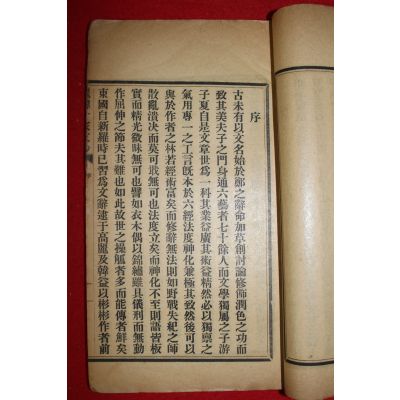 序
古未有以文名始於鄭之辭命如草創討論修飾潤色之功而
致其美夫子之門身通六藝者七十餘人而文學獨屬之子游
子夏自是文章世為一科其業益廣其術益精然必以獨禀之
氣用專一之工言既本於六經法度神化兼極其致然後可以
與於作者之林若經術富矣而修辭無法則如野戰失紀之師
散亂潰决而莫可戢無可也法度立矣而神化不至則語皆板
實而精光微昧無可也譬如衣木偶以錦繡雖具儀刑而無動
作屈伸之節夫其難也如此故世之操觚者多而能傳者鮮矣
東國自新羅時已習為文辭逮于高麗及韓益以彬彬作者前